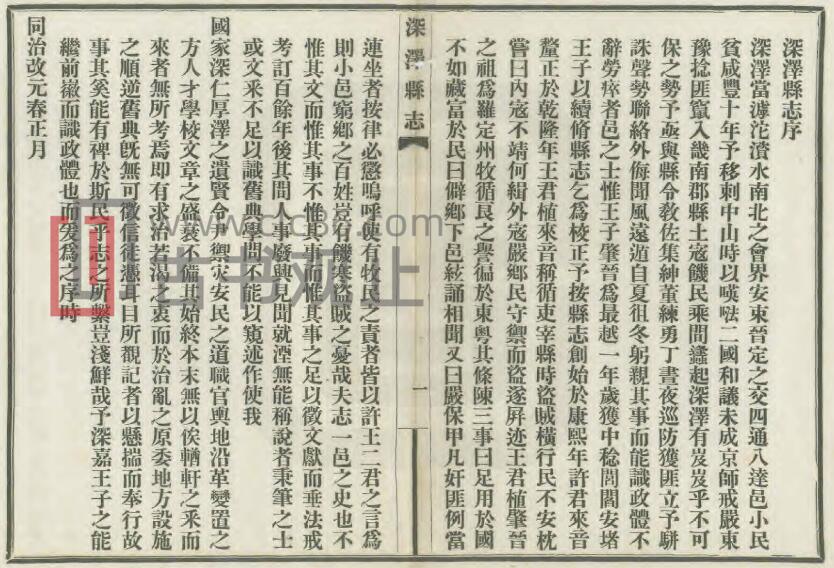 深澤縣志序
深澤當滹沱濱水南北之會界安束晉定之交四通八達邑小民
貧咸豐十年予移刺中山時以㖦㕸二國和議未成京師戒嚴東
豫捻匪竄入畿南郡縣土寇饑民乘間蠭起深澤有岌岌乎不可
保之勢予亟與縣令敎佐集紳董練勇丁晝夜巡防獲匪立予駢
誅聲勢聯絡外侮聞風遠遁自夏徂冬躬親其事而能識政體不
辭勞瘁者邑之士惟王子肇晉為最越一年歲獲中稔閭閻安堵
王子以續脩縣志乞為校正予按縣志創始於康熙年許君來音
釐正於乾隆年王君植來音稱循吏宰縣時盜賊橫行民不安枕
嘗曰內寇不靖何緝外寇嚴鄉民守禦而盜遂屏迹王君植肇晉
之祖為羅定州牧循艮之譽徧於東粵其條陳三事曰足用於國
不如藏富於民曰僻鄉下邑絃誦相聞又曰嚴保甲凡奸匪例當
深澤縣志
一
連坐者按律必懲嗚呼使有牧民之責者皆以許王二君之言為
則小邑窮鄉之百姓豈有饑寒盜賊之憂哉夫志一邑之史也不
惟其文而惟其事不惟其事而惟其事之足以徵文獻而垂法戒
考訂百餘年後其間人事廢興見聞就湮無能稱說者秉筆之士
或文釆不足以識舊典學問不能以窺述作使我
國家深仁厚澤之遺賢令尹禦灾安民之道職官輿地沿革變置之
方人才學校文章之盛衰不備其始終本末無以俟輶軒之釆而
來者無所考焉即有求治若渴之衷而於治亂之原委地方設施
之順逆舊典旣無可徵信徒憑耳目所覩記者以懸揣而奉行故
事其奚能有裨於斯民乎志之所繫豈淺鮮哉予深嘉王子之能
繼前徽而識政體也而爰為之序時
同治改元春正月